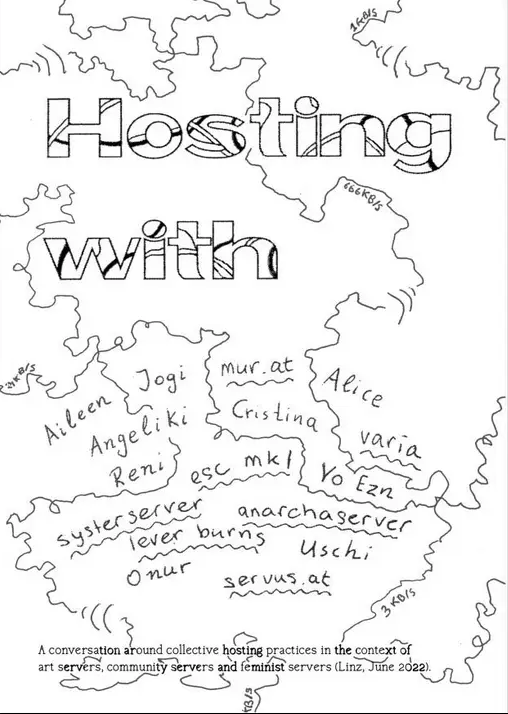 1KB/s
Hosting
666KB/s
with
KB/s
Jogi
mur.at
Alice
Aileen
Angeliki
Cristina
varia
Reni
esc mkl
Yo Ezn
systerserver
anarchaserver
lever burns
Uschi
Onur
servus.at
3KB/s
A conversation around collective hosting practices in the context of
art servers, community servers and feminist servers (Linz, June 2022).
KB/s